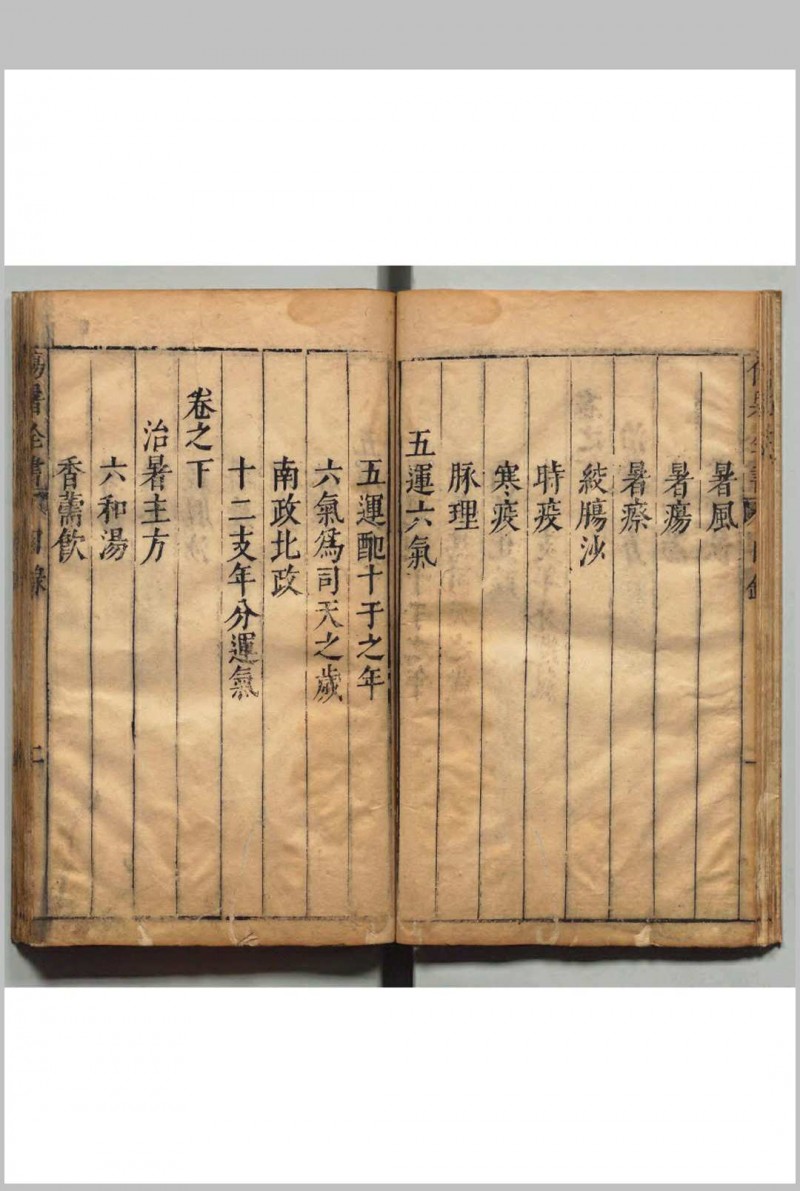 暑風
暑瘍
暑瘵
絞腸沙
時疫
寒疫
脉理
五運六氣
五運配十干之年
六氣爲司天之歲
南政北政
十二支年分運氣
卷之下
治暑主方
六和湯
香薷飲
傷暑全書 目錄 二